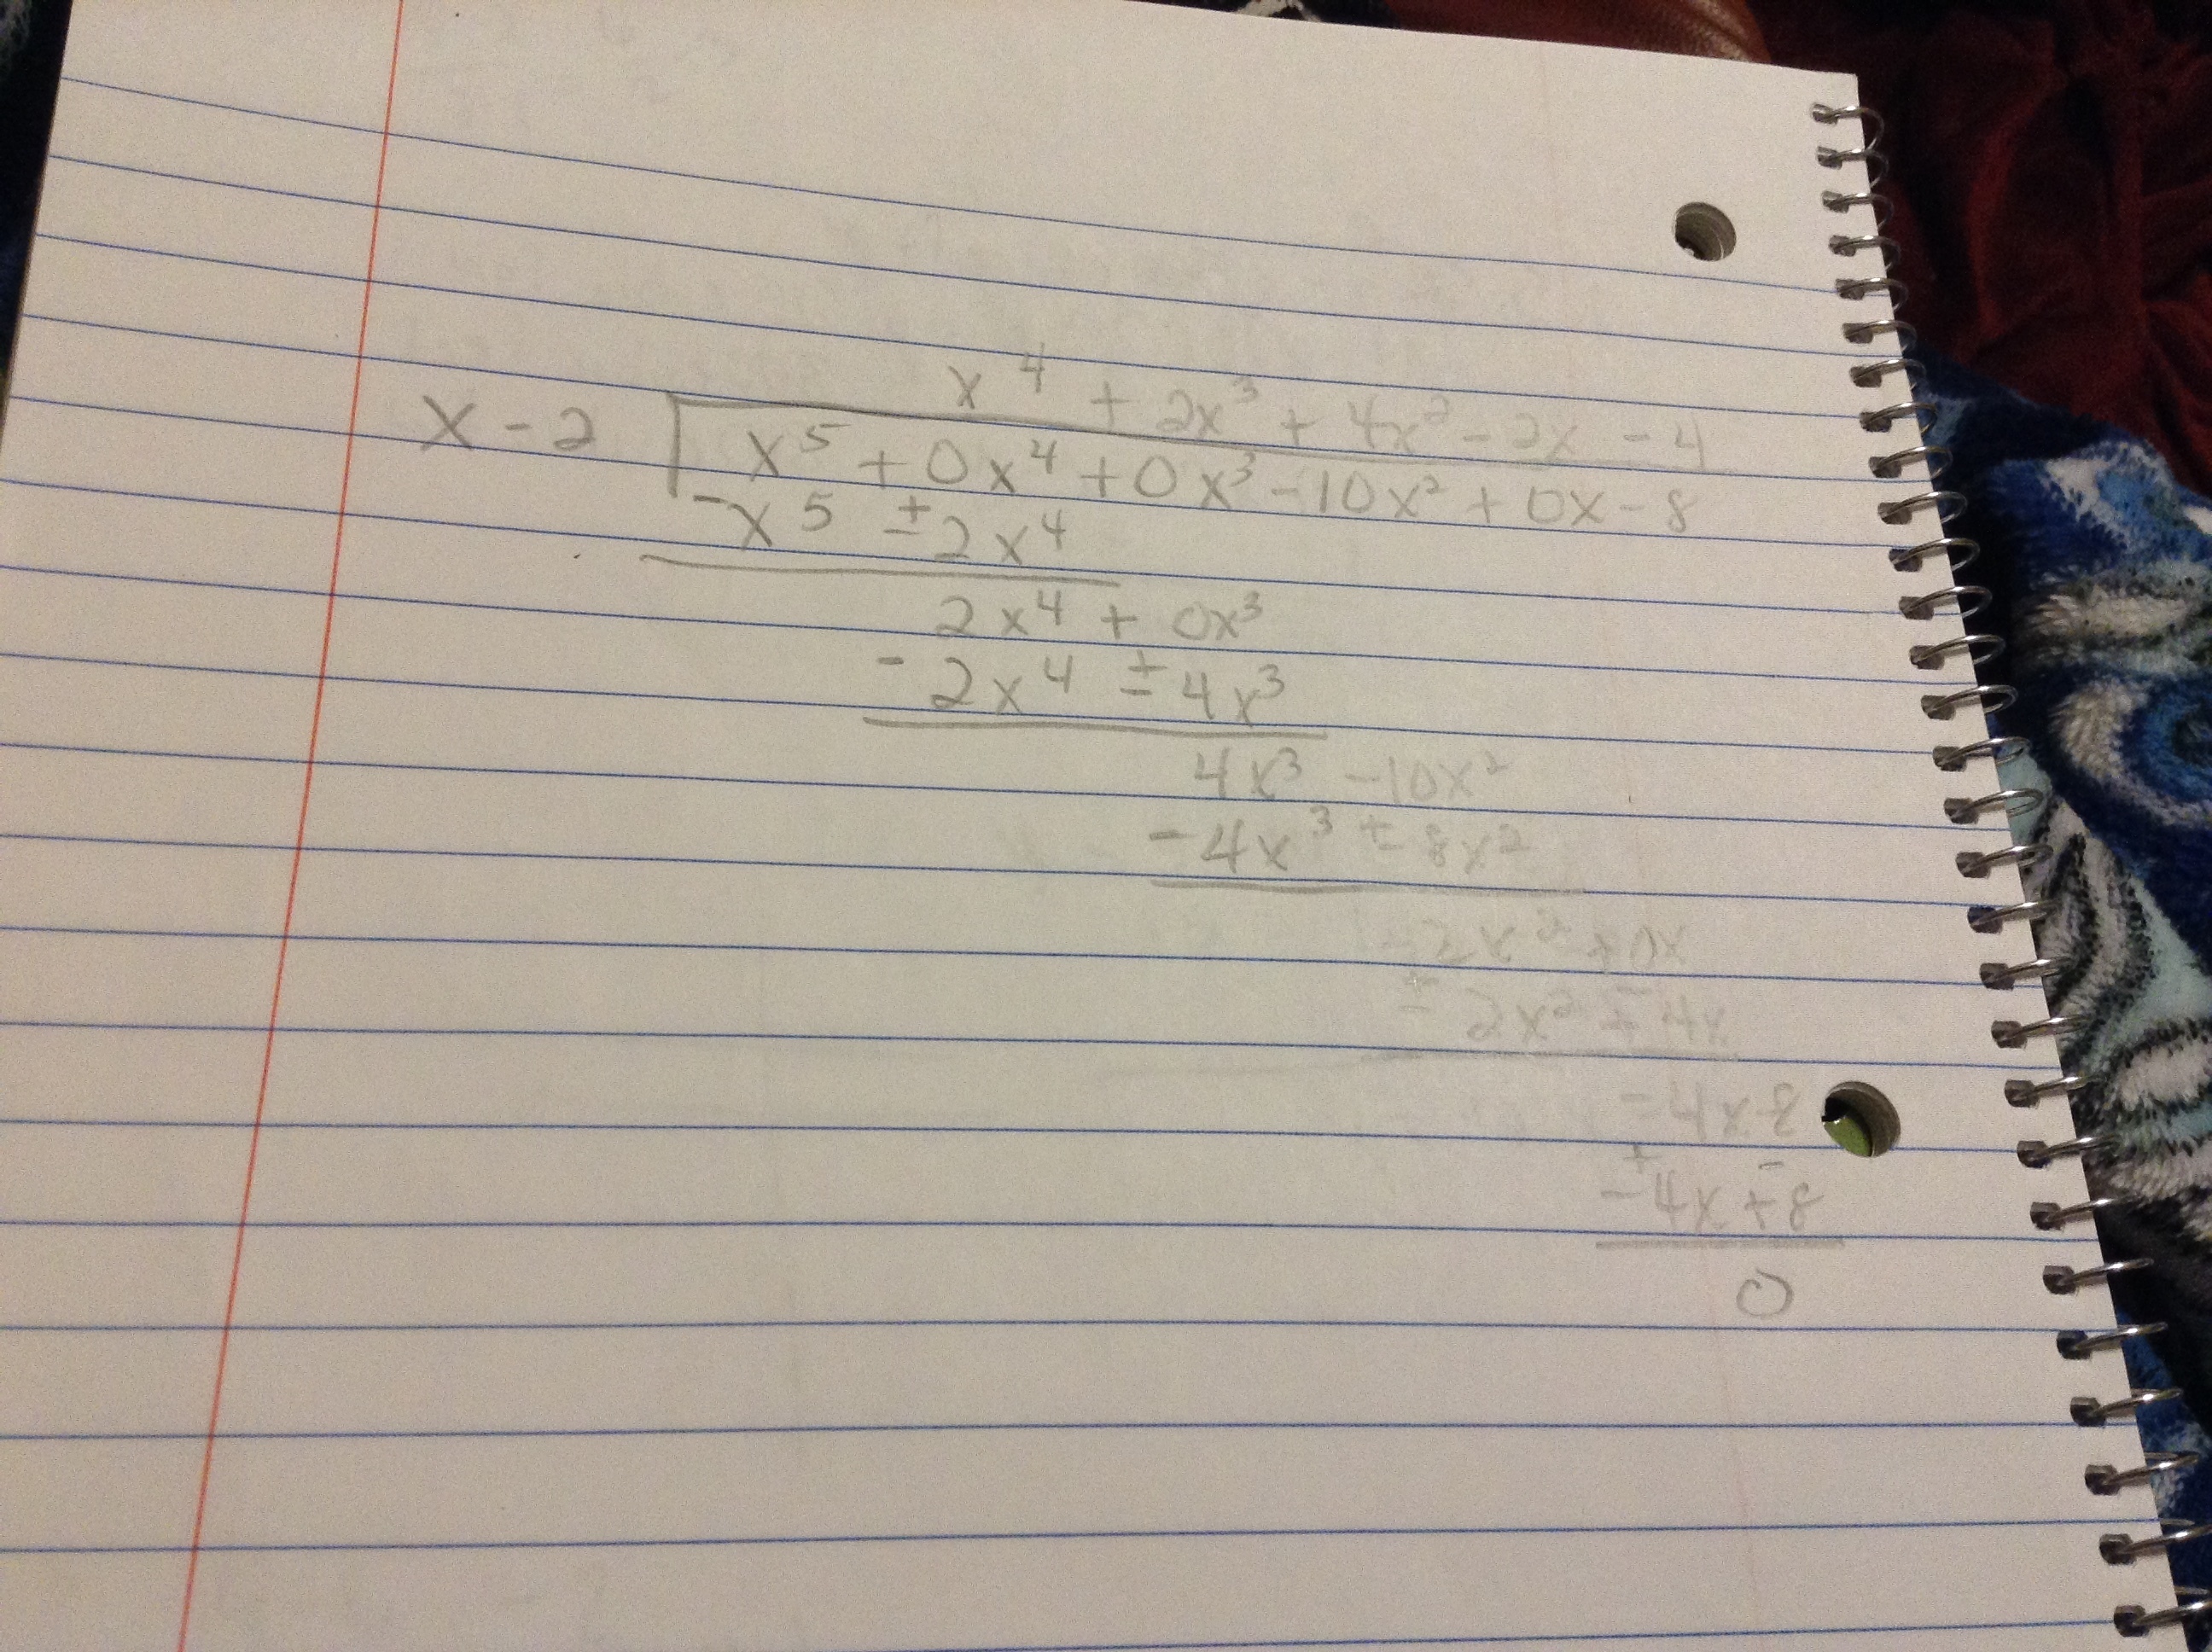 x⁴ + 2x³ + 4x² - 2x - 4
x - 2 x⁵ + 0x⁴ + 0x³ - 10x² + 0x - 8
- x⁵ ± 2x⁴
2x⁴ + 0x³
- 2x⁴ ± 4x³
4x³ - 10x²
- 4x³ ± 8x²
- 2x² + 0x
± 2x² ∓ 4x
- 4x - 8
± 4x ∓ 8
0